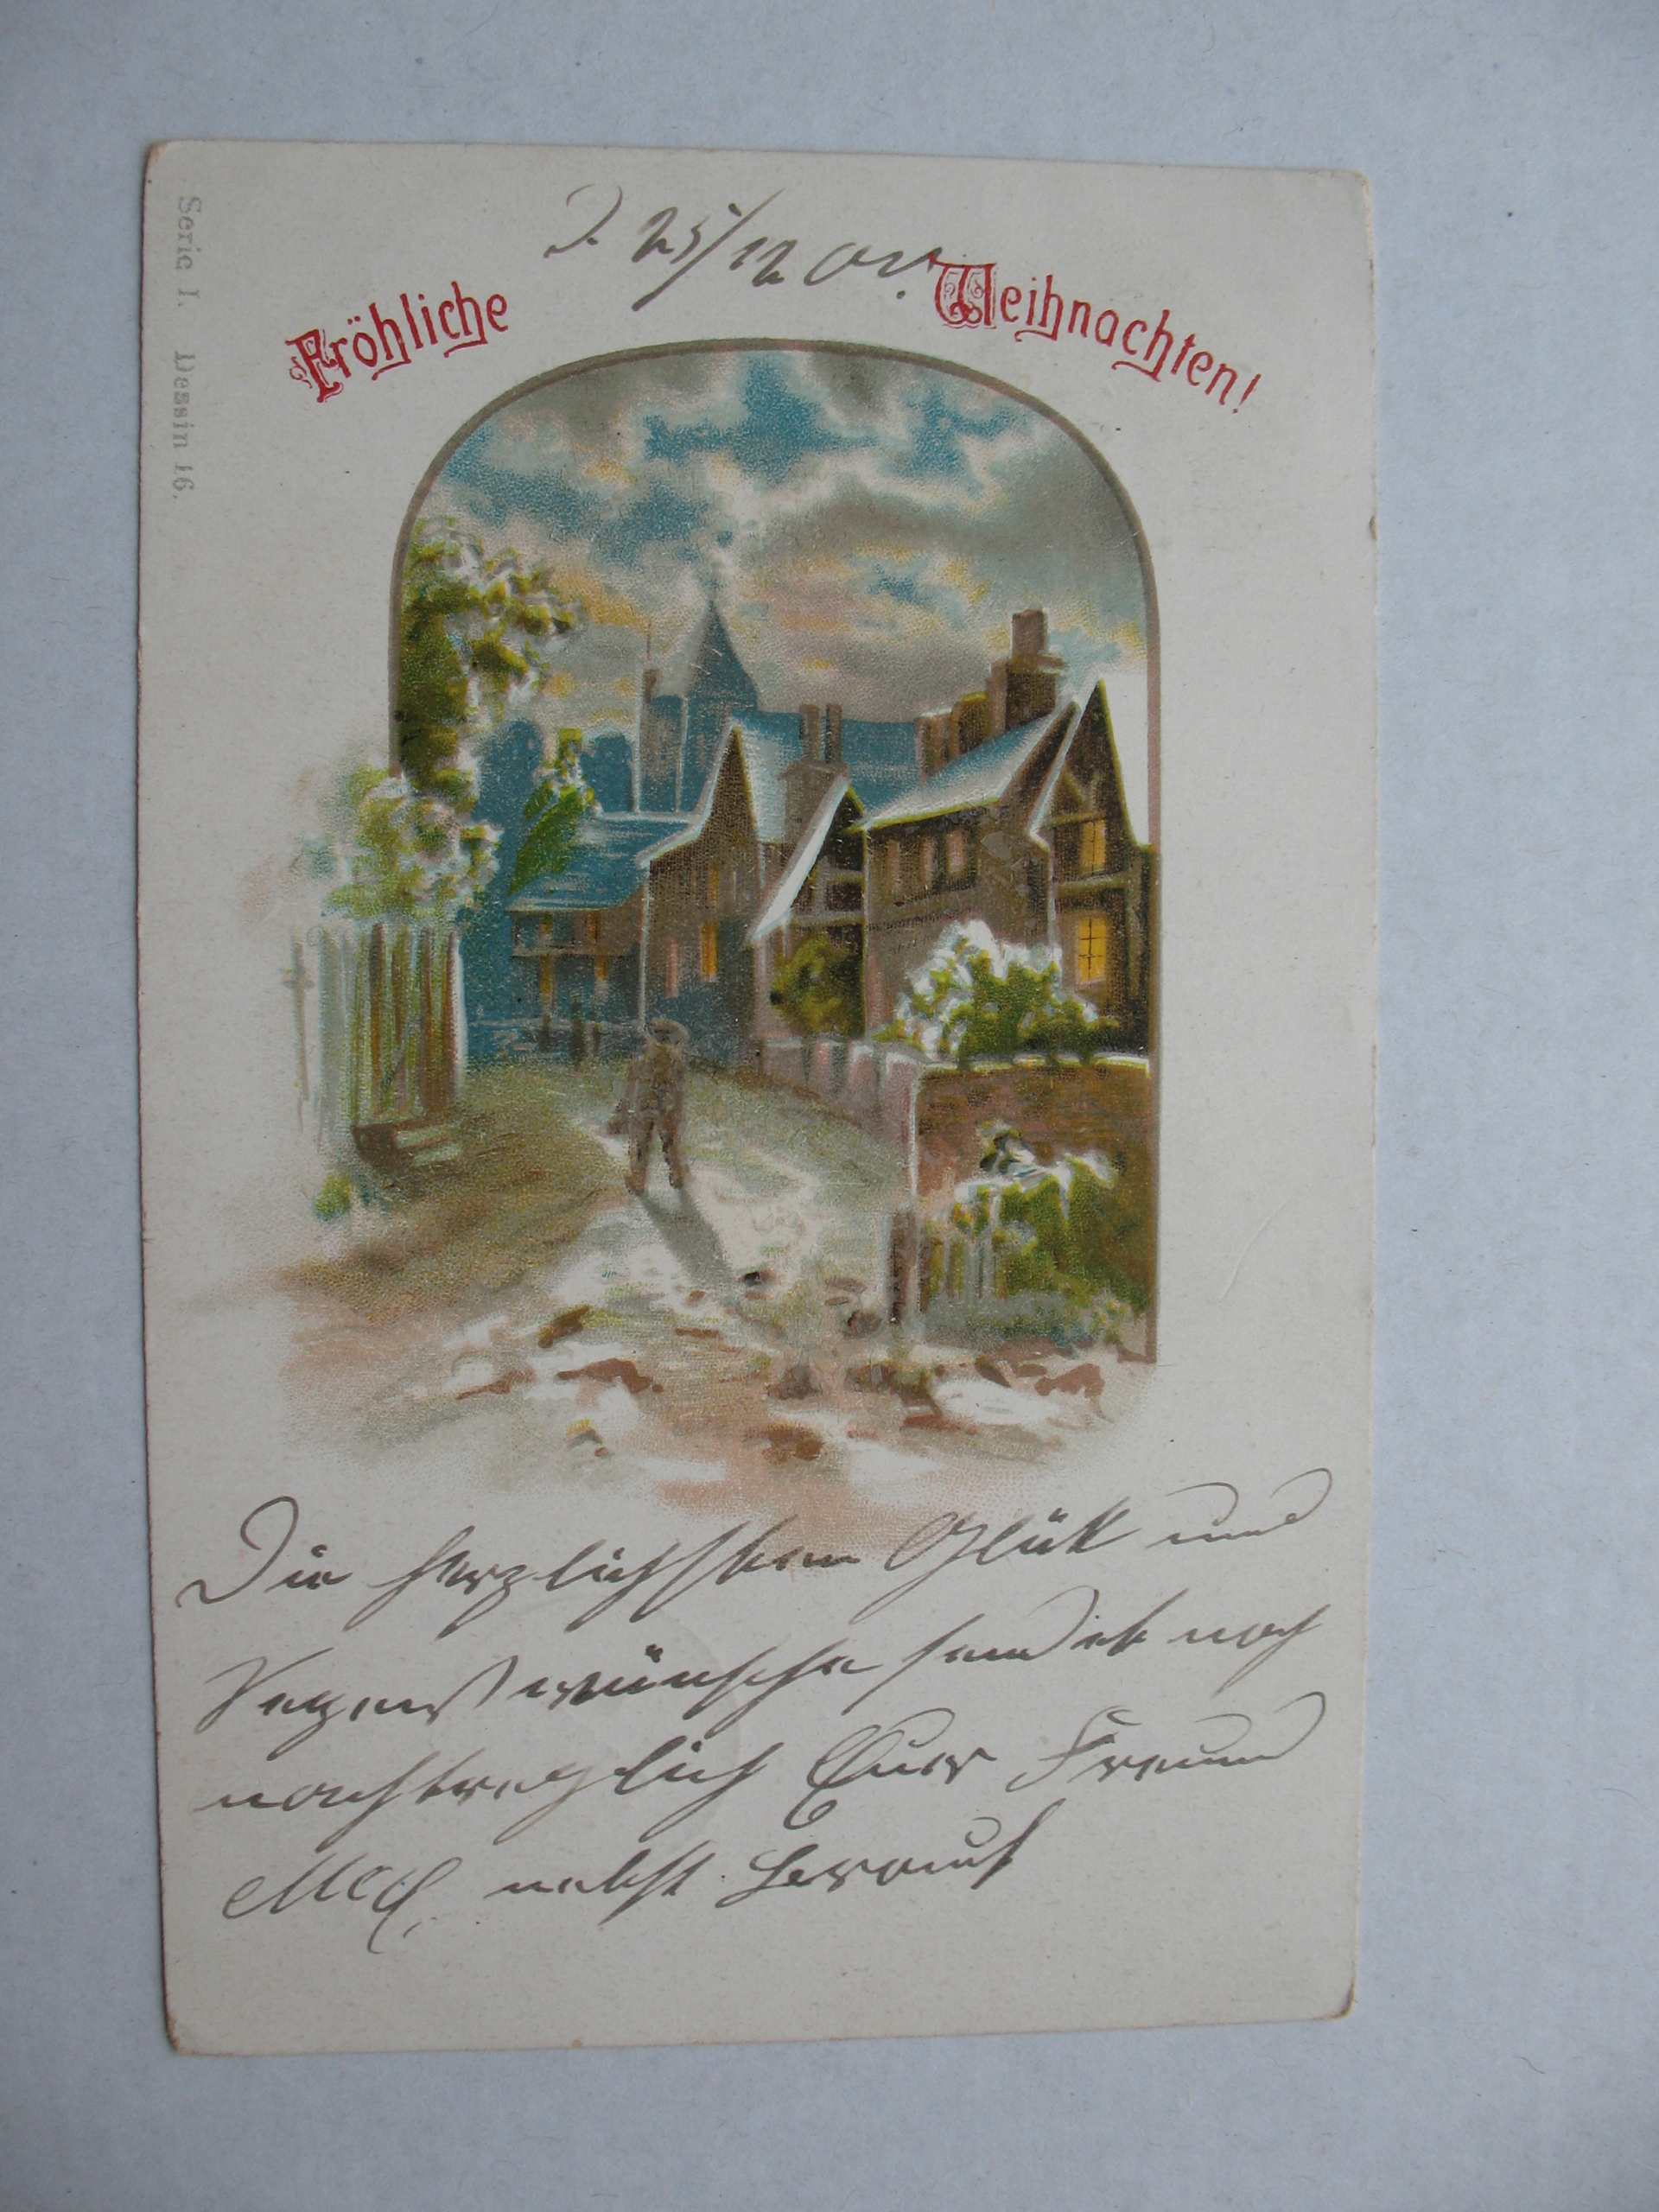 D. 25/12 01.
Fröhliche Weihnachten!
Serie I. Dessin 16.
Die herzlichsten Glück und
Segenswünsche sendet noch
nachträglich Euer Freund
nebst Braut